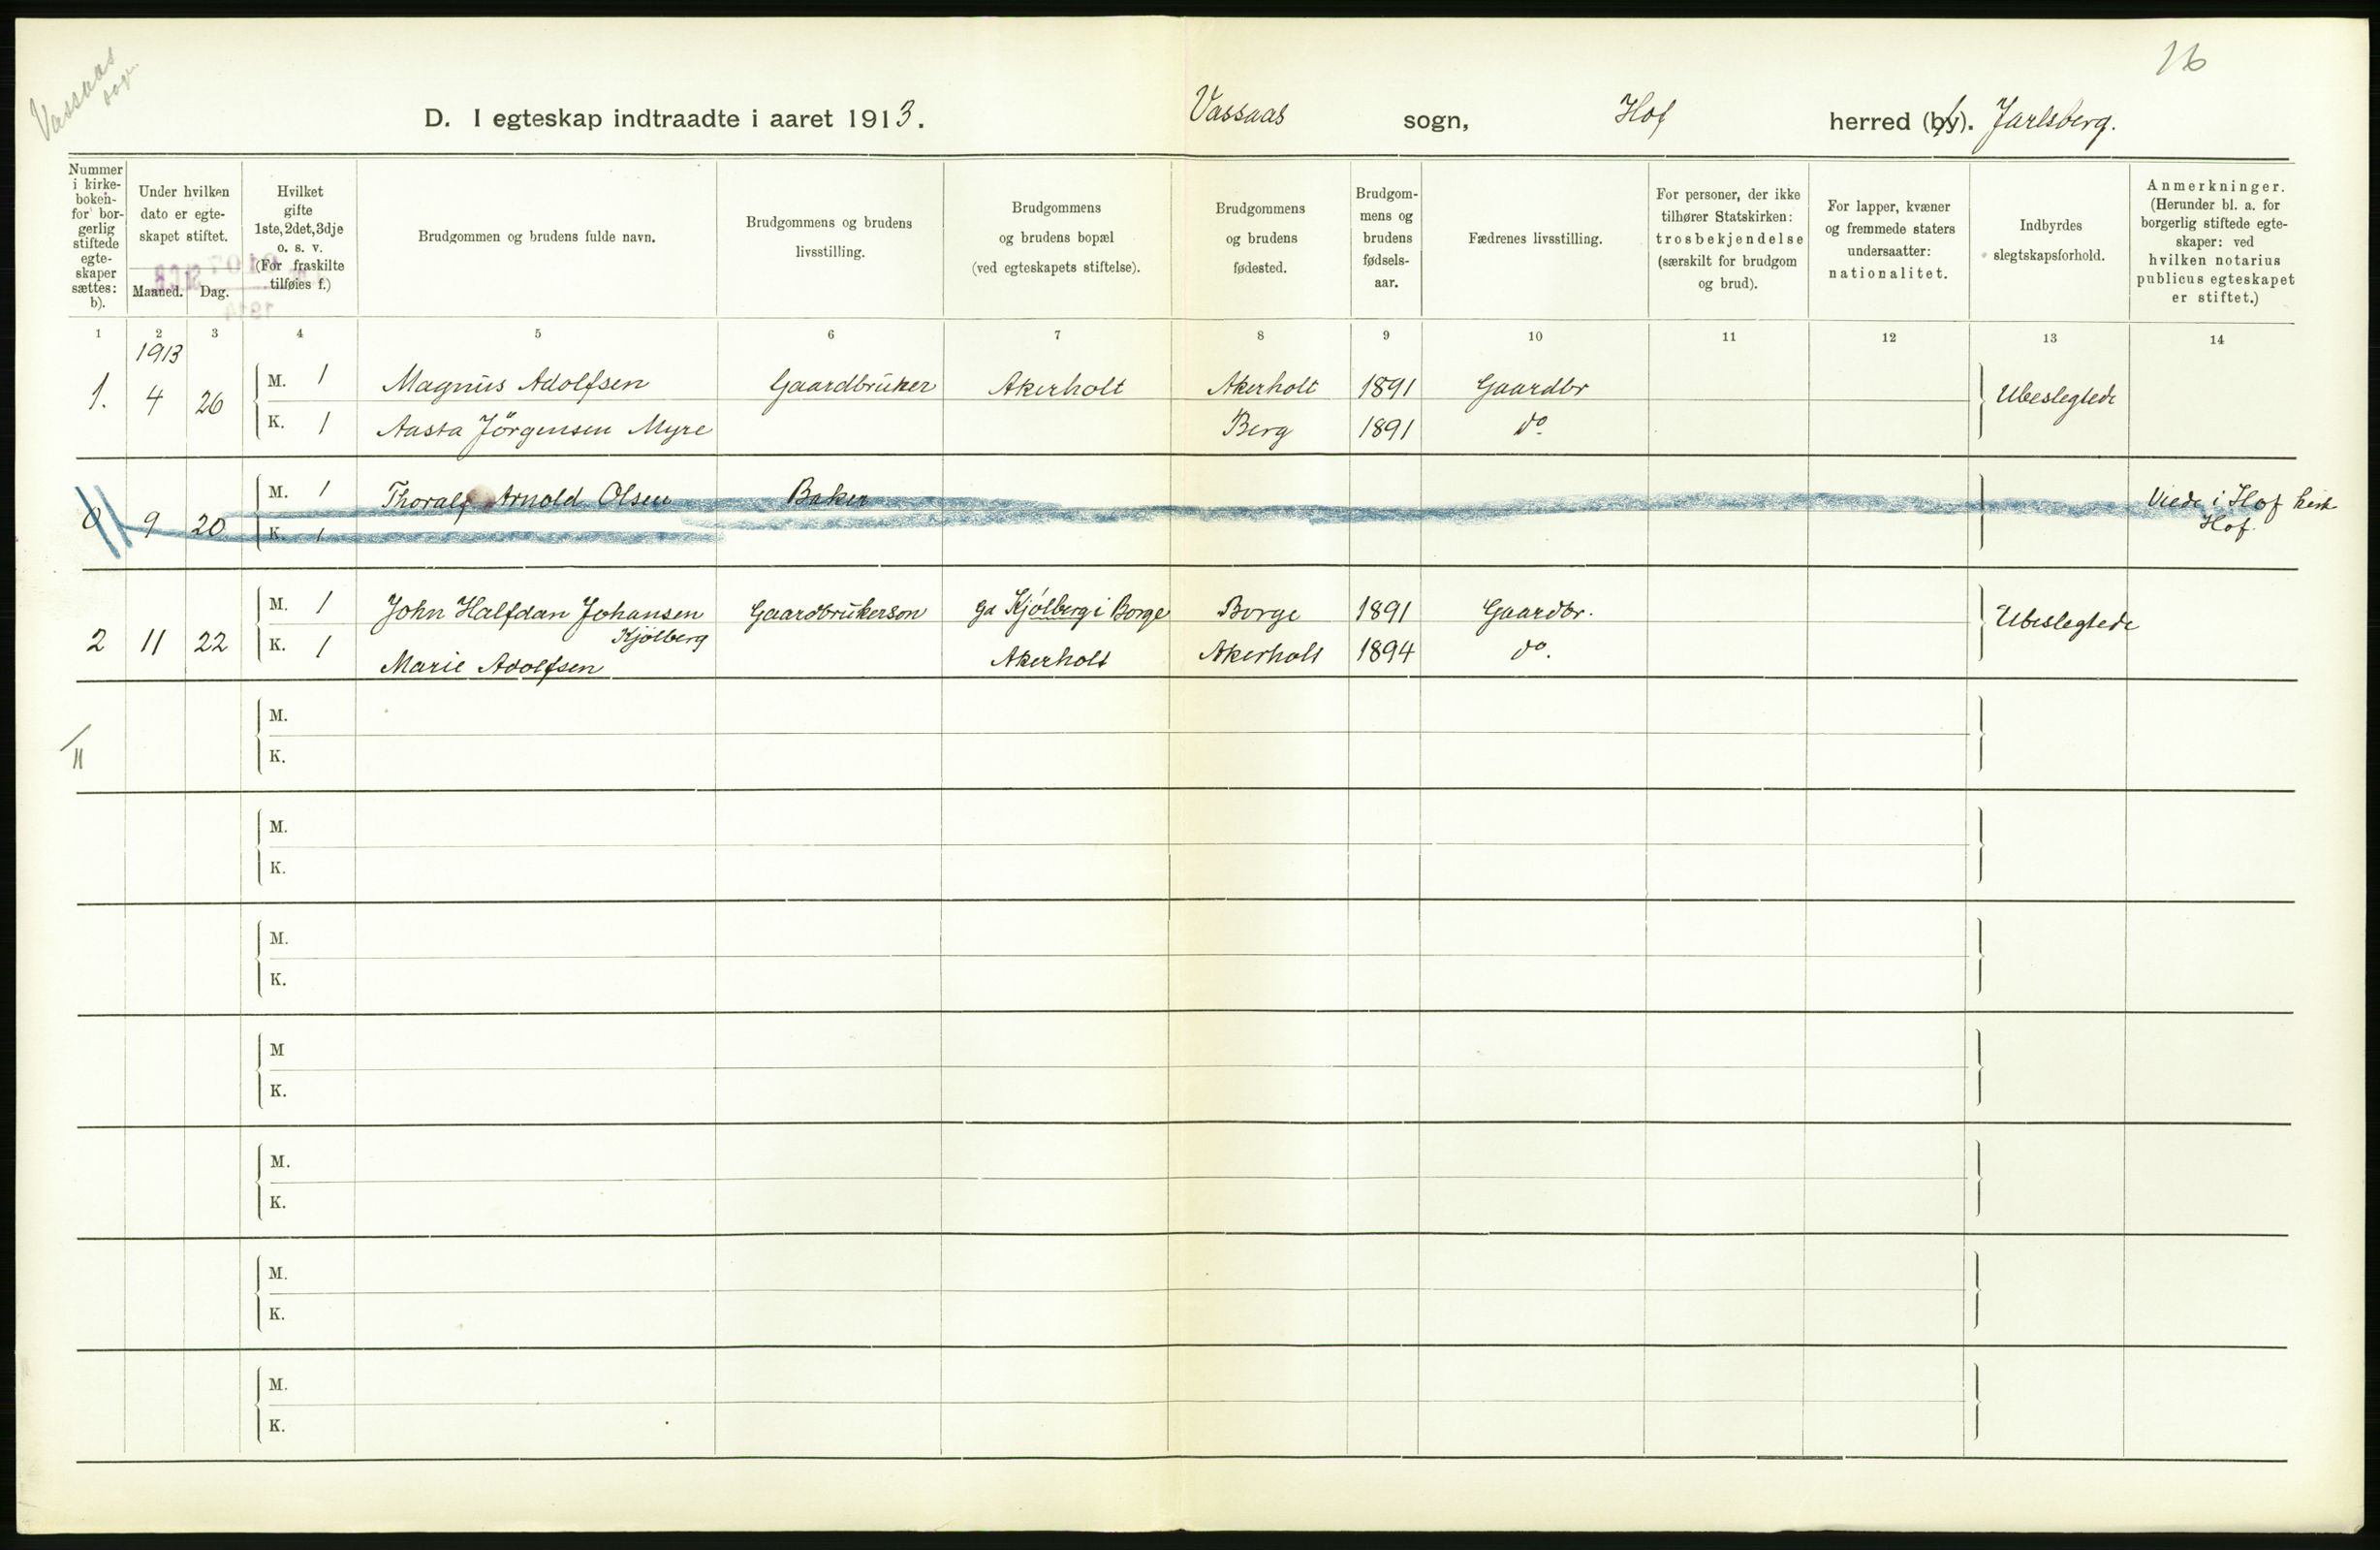 Vassaas
sogn.
16
D. I egteskap indtraadte i aaret 1913.
Vassaas sogn, Hof herred (by). Jarlsberg.
Nummer i kirke- boken- for bor- gerlig stiftede egte- skaper sættes: b).
Under hvilken dato er egte- skapet stiftet.
Maaned. Dag.
Hvilket gifte 1ste, 2det, 3dje o. s. v. (For fraskilte tilføies f.)
Brudgommen og brudens fulde navn.
Brudgommens og brudens livsstilling.
Brudgommens og brudens bopæl (ved egteskapets stiftelse).
Brudgommens og brudens fødested.
Brudgom- mens og brudens fødsels- aar.
Fædrenes livsstilling.
For personer, der ikke tilhører Statskirken: trosbekjendelse (særskilt for brudgom og brud).
For lapper, kvæner og fremmede staters undersaatter: nationalitet.
Indbyrdes slegtskapsforhold.
Anmerkninger. (Herunder bl. a. for borgerlig stiftede egte- skaper: ved hvilken notarius publicus egteskapet er stiftet.)
1 2 3 4 5 6 7 8 9 10 11 12 13 14
1913
1. 4 26 M. 1 Magnus Adolfsen Gaardbruker Akerholt Akerholt 1891 Gaardbr Ubeslegtede
K. 1 Aasta Jörgensen Myre Berg 1891 do.
0 9 20 M. 1 Thoralf Arnold Olsen Baker Viede i Hof kirk
K. 1 Hof.
2 11 22 M. 1 John Halfdan Johansen Gaardbrukerson Gd Kjölberg i Borge Borge 1891 Gaardbr. Ubeslegtede
Kjölberg
K. 1 Marie Adolfsen Akerholt Akerholt 1894 do.
M.
K.
M.
K.
M.
K.
M
K.
M.
K.
M.
K.
M.
K.